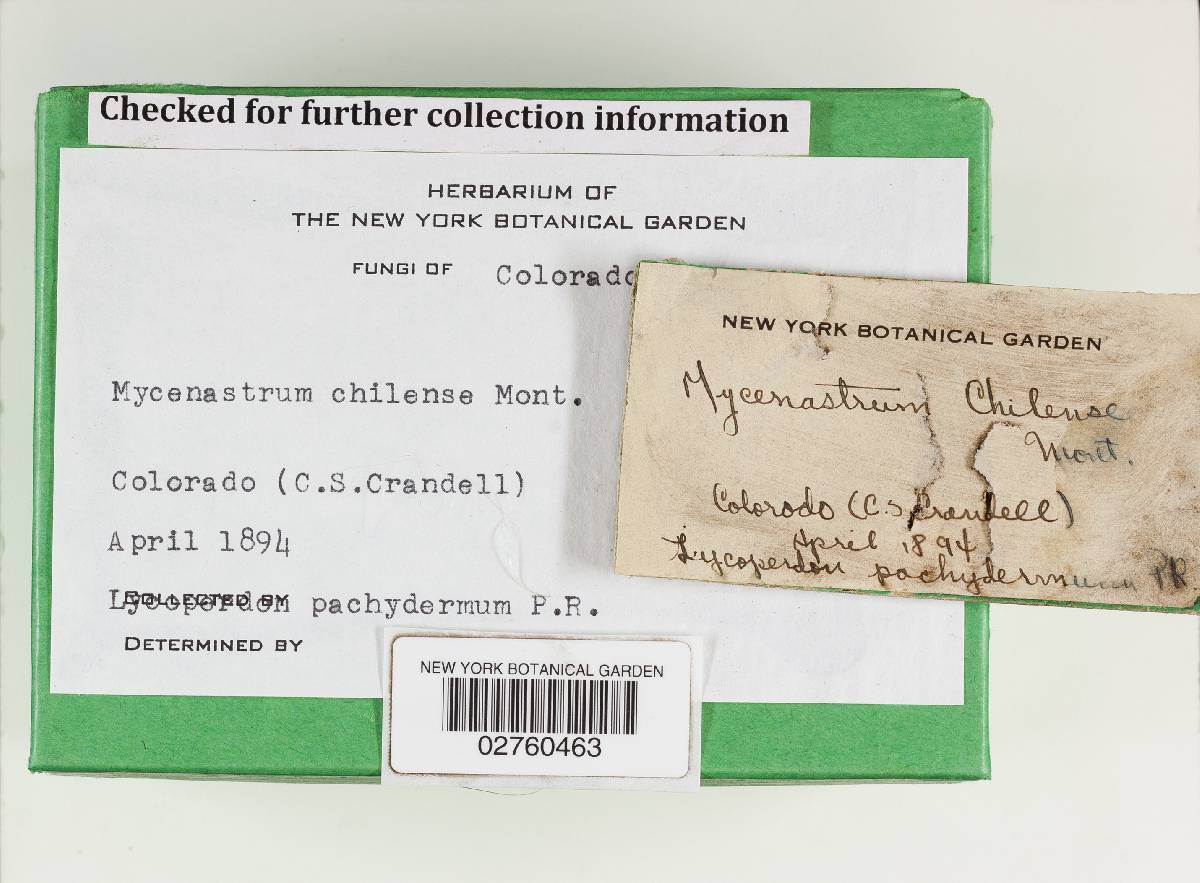 Checked for further collection information
HERBARIUM OF
THE NEW YORK BOTANICAL GARDEN
FUNGI OF Colorado
Mycenastrum chilense Mont.
Colorado (C.S.Crandell)
April 1894
Lycoperdom pachydermum P.R.
COLLECTED BY
DETERMINED BY
NEW YORK BOTANICAL GARDEN
Mycenastrum Chilense
Mont.
Colorado (C.S. Crandell)
April 1894
Lycoperdon pachydermum P.R
NEW YORK BOTANICAL GARDEN
02760463